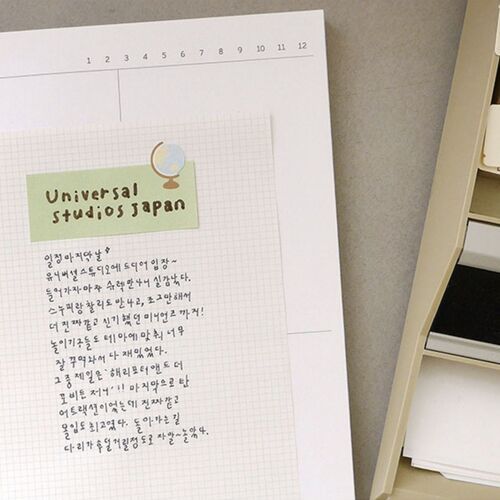 1 2 3 4 5 6 7 8 9 10 11 12
Universal
studios Japan
일정 마지막 날
유니버셜 스튜디오에 드디어 입장~
들어가자마자 슈렉 만나니 실감났다.
스누피랑 찰리도 만나고, 조그만해서
더 진짜같고 신기했던 미니언즈까지!
놀이기구들도 테마에 맞춰 너무
잘 꾸며놔서 다 재밌었다.
그 중 제일은 '해리포터 앤드 더
포비든 저니'!! 마지막으로 탄
어트랙션이었는데 진짜같고
몰입도 최고였다. 돌아가는 길
다리가 후덜거릴 정도로 자알~ 놀았다.